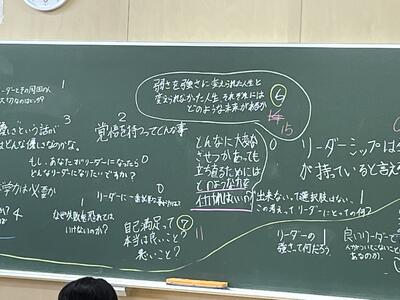 リーダーときの周囲の人
大切なのはいつ?
1
弱さを強さに変えられた人生と
変えられなかった人生、それぞれには
どのような未来があるか
6
14
15
3
優しさという話が
はどんな優しさなのかな。
2
覚悟を持つってどんな事
0
もし、あなたがリーダーになったら
どんなリーダーになりたいですか?
0
どんなに大変な
させつがあっても
立ち直るためには
どのような力を
付ければいいか?
0
リーダーシップは
が持っていると言え
学力は必要か
4
1
なぜ失敗を恐れては
いけないのか?
リーダーに一番必要な
0
自己満足って
本当は良いこと?
悪いこと?
7
11
0
出来ないって選択肢はない。
この考えってリーダーにとって何?
リーダーの
強さって何だろう
1
良いリーダー
人がついてこないと
あるのか。